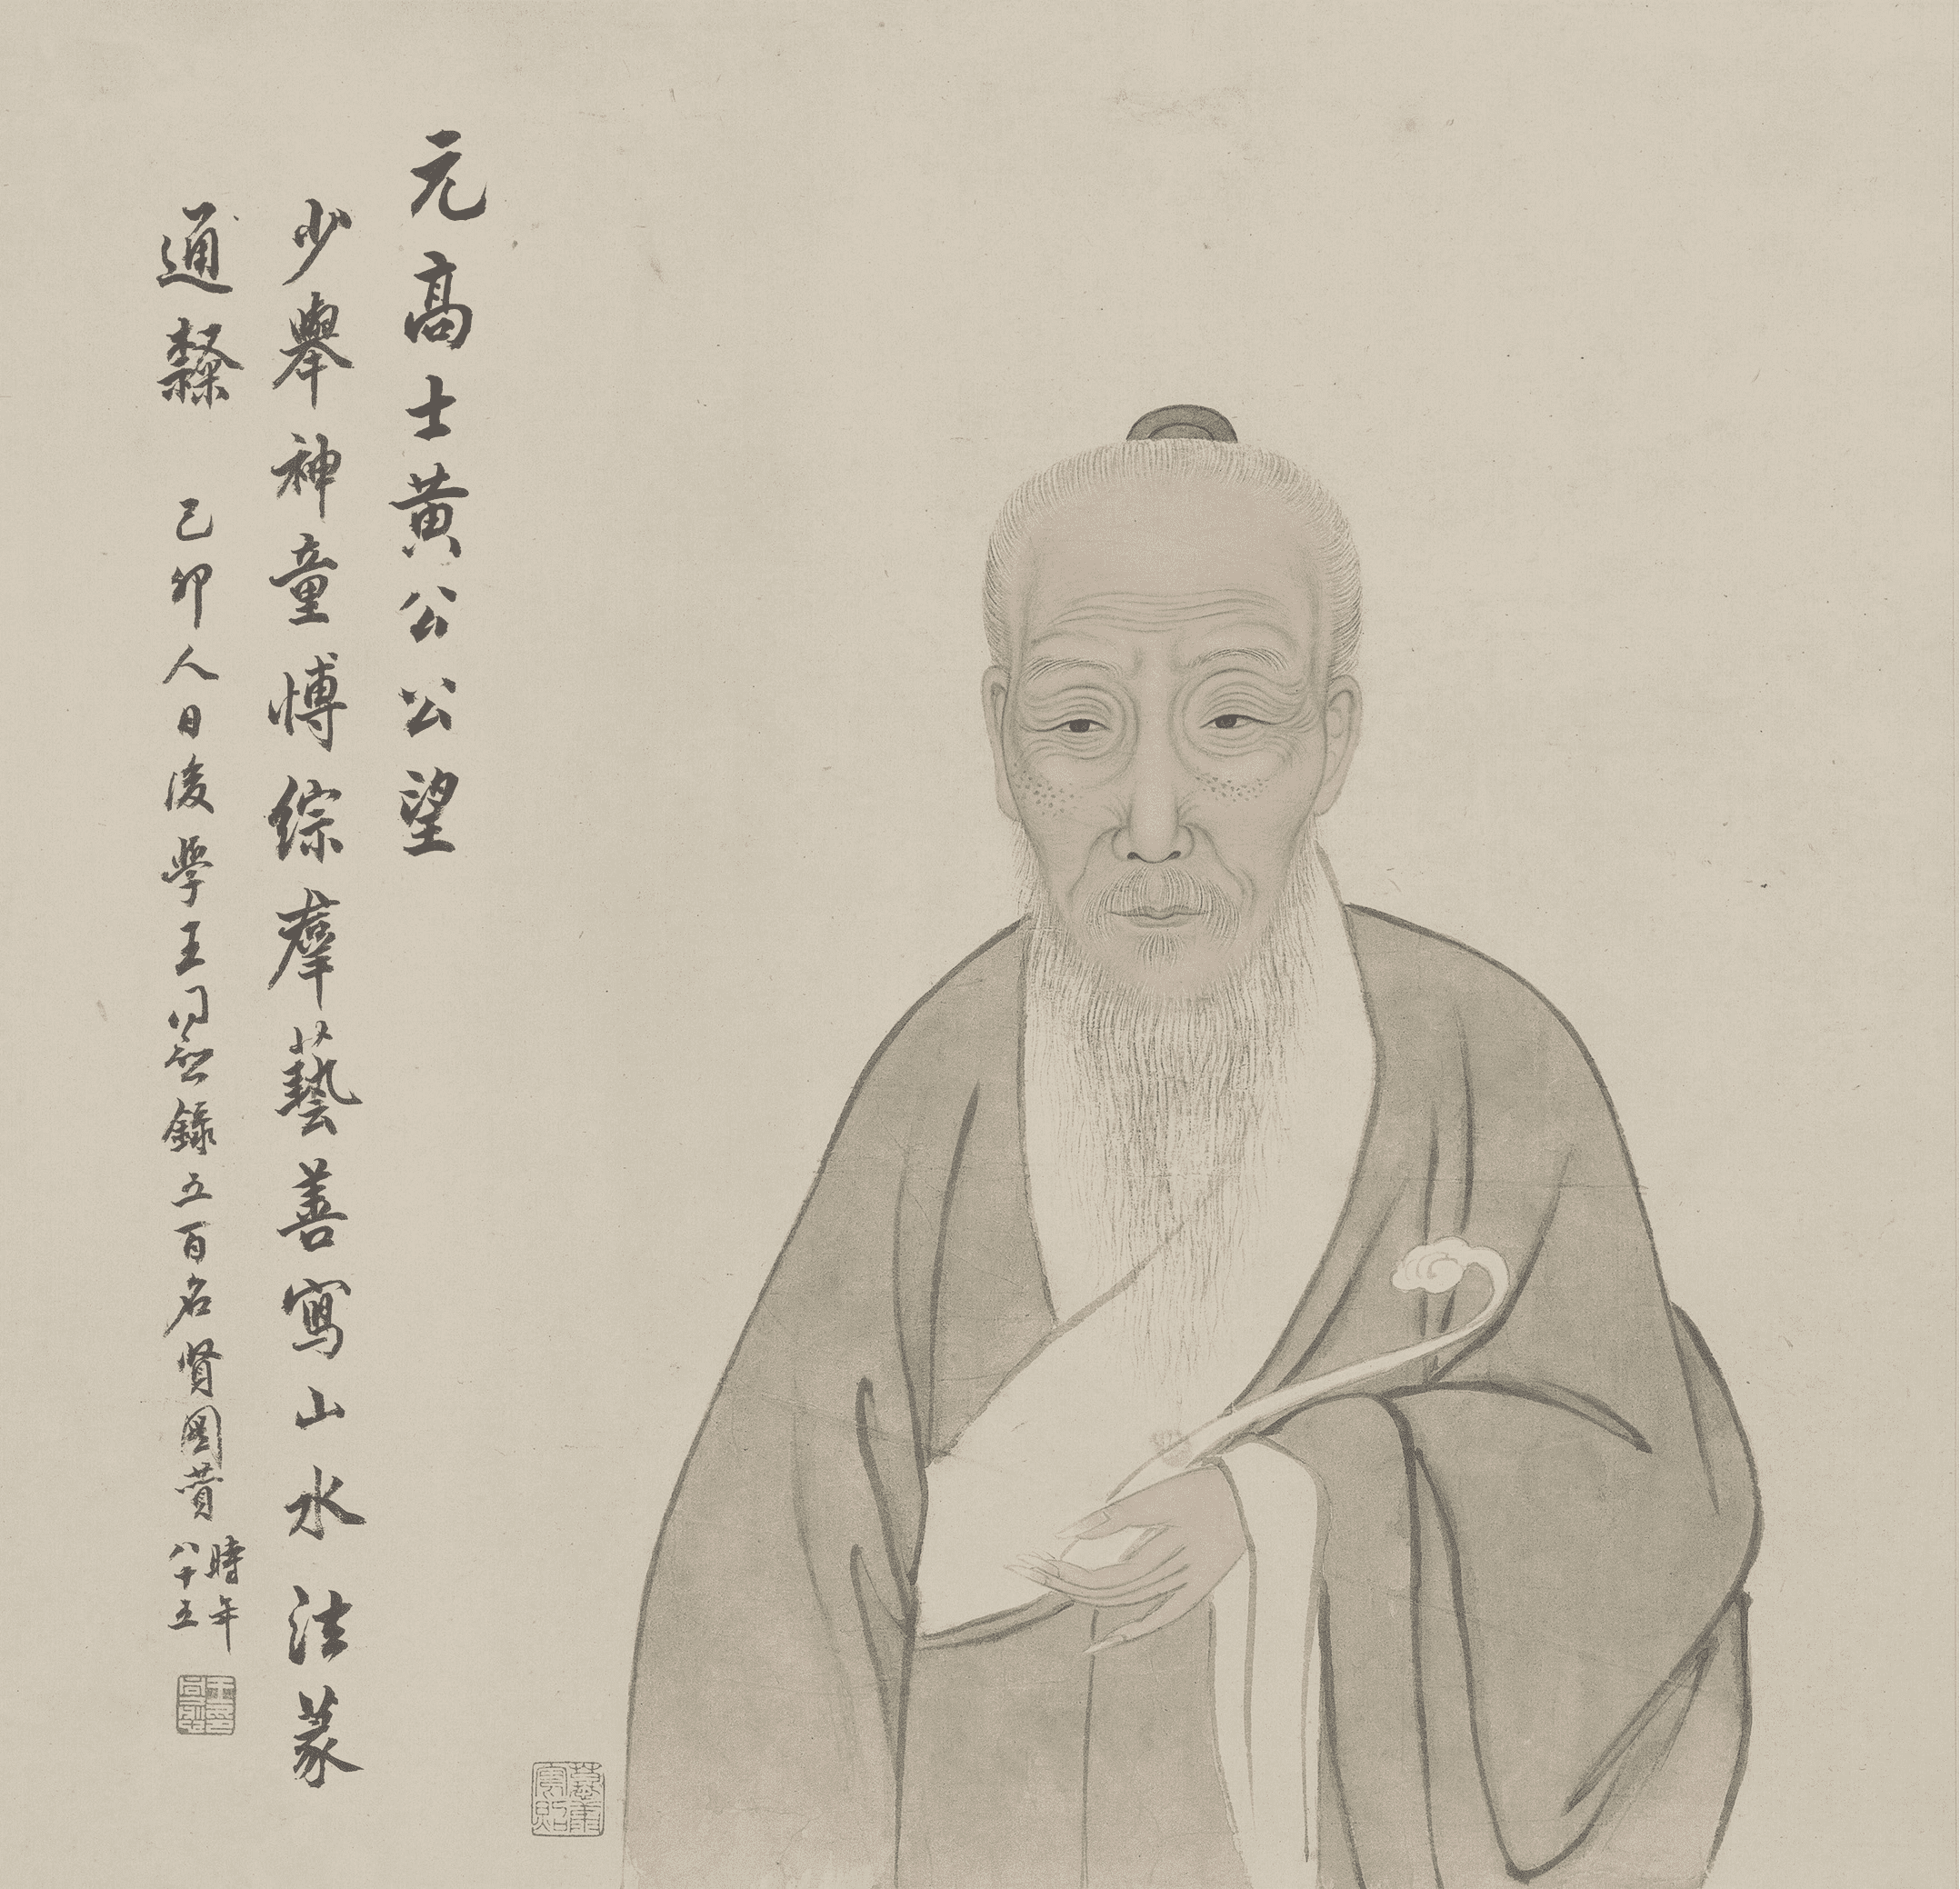 元高士黄公公望
少舉神童博綜羣藝善寫山水法篆
通隸 己卯人日後學王同愈錄五百名賢圖贊時年八十五